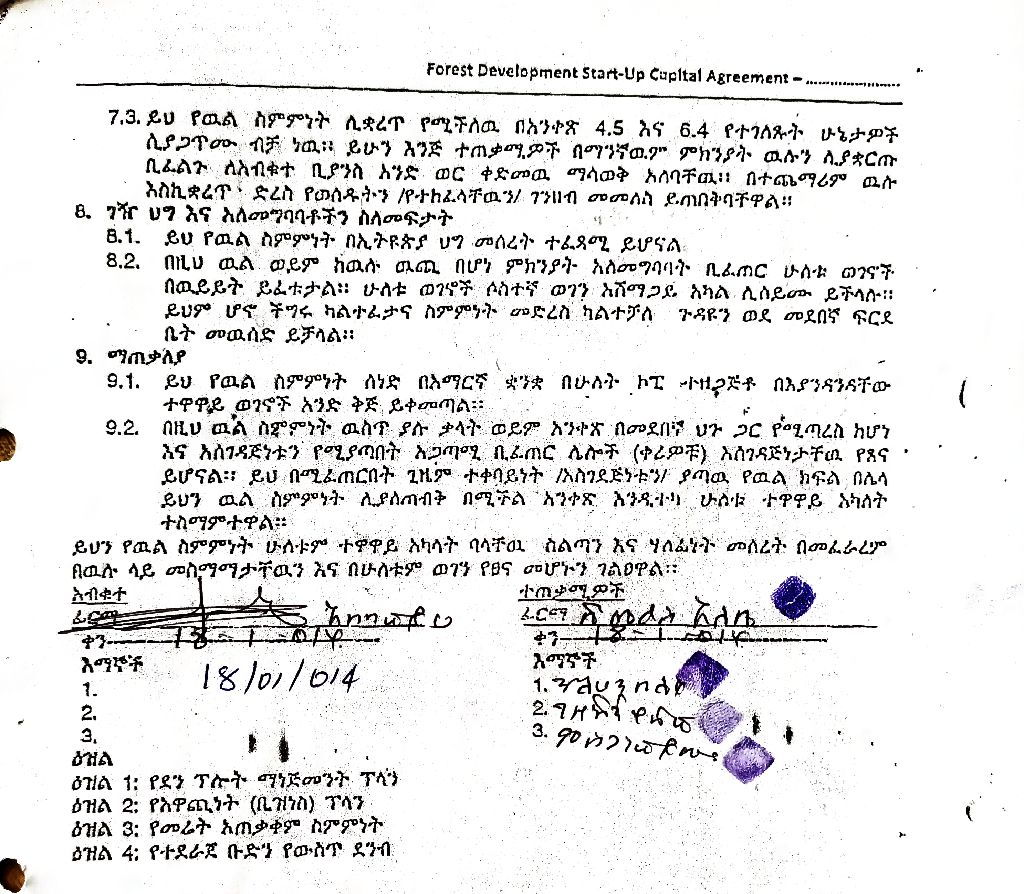 Forest Development Start-Up Capital Agreement – ......................
7.3. ይህ የዉል ስምምነት ሊቋረጥ የሚችለዉ በአንቀጽ 4.5 እና 6.4 የተገለጹት ሁኔታዎች
ሲያጋጥሙ ብቻ ነዉ። ይሁን እንጅ ተጠቃሚዎች በማንኛዉም ምክንያት ዉሉን ሊያቋርጡ
ቢፈልጉ ለአብቁተ ቢያንስ አንድ ወር ቀድመዉ ማሳወቅ አለባቸዉ። በተጨማሪም ዉሉ
እስኪቋረጥ ድረስ የወሰዱትን /የተከፈላቸዉን/ ገንዘብ መመለስ ይጠበቅባቸዋል።
8. ገዥ ህግ እና አለመግባባቶችን ስለመፍታት
8.1. ይህ የዉል ስምምነት በኢትዩጵያ ህግ መሰረት ተፈጻሚ ይሆናል
8.2. በዚህ ዉል ወይም ከዉሉ ዉጪ በሆነ ምክንያት አለመግባባት ቢፈጠር ሁለቱ ወገኖች
በዉይይት ይፈቱታል። ሁለቱ ወገኖች ሶስተኛ ወገን አሸማጋይ አካል ሊሰይሙ ይችላሉ።
ይህም ሆኖ ችግሩ ካልተፈታና ስምምነት መድረስ ካልተቻለ ጉዳዩን ወደ መደበኛ ፍርደ
ቤት መዉሰድ ይቻላል።
9. ማጠቃለያ
9.1. ይህ የዉል ስምምነት ሰነድ በአማርኛ ቋንቋ በሁለት ኮፒ ተዘጋጅቶ በእያንዳንዳቸው
ተዋዋይ ወገኖች አንድ ቅጅ ይቀመጣል።
9.2. በዚህ ዉል ስምምነት ዉስጥ ያሉ ቃላት ወይም አንቀጽ በመደበኛ ህጉ ጋር የሚጣረስ ከሆነ
እና አስገዳጅነቱን የሚያጣበት አጋጣሚ ቢፈጠር ሌሎች (ቀሪዎቹ) አስገዳጅነታቸዉ የጸና
ይሆናል። ይህ በሚፈጠርበት ጊዜም ተቀባይነት /አስገደጅነቱን/ ያጣዉ የዉል ክፍል በሌላ
ይህን ዉል ስምምነት ሊያስጠብቅ በሚችል አንቀጽ እንዲተካ ሁለቱ ተዋዋይ አካለት
ተስማምተዋል።
ይህን የዉል ስምምነት ሁለቱም ተዋዋይ አካላት ባላቸዉ ስልጣን እና ሃለፊነት መሰረት በመፈራረም
በዉሉ ላይ መስማማታቸዉን እና በሁለቱም ወገን የፀና መሆኑን ገልፀዋል።
አብቁተ
ፊርማ
ቀን 18-1-014
እማኞች
18/01/014
1.
2.
3.
ተጠቃሚዎች
ፊርማ
ቀን 18-1-014
እማኞች
1.
2.
3.
ዕዝል
ዕዝል 1: የደን ፕሎት ማነጅመንት ፕላን
ዕዝል 2: የአዋጪነት (ቢዝነስ) ፕላን
ዕዝል 3: የመሬት አጠቃቀም ስምምነት
ዕዝል 4: የተደራጀ ቡድን የውስጥ ደንብ